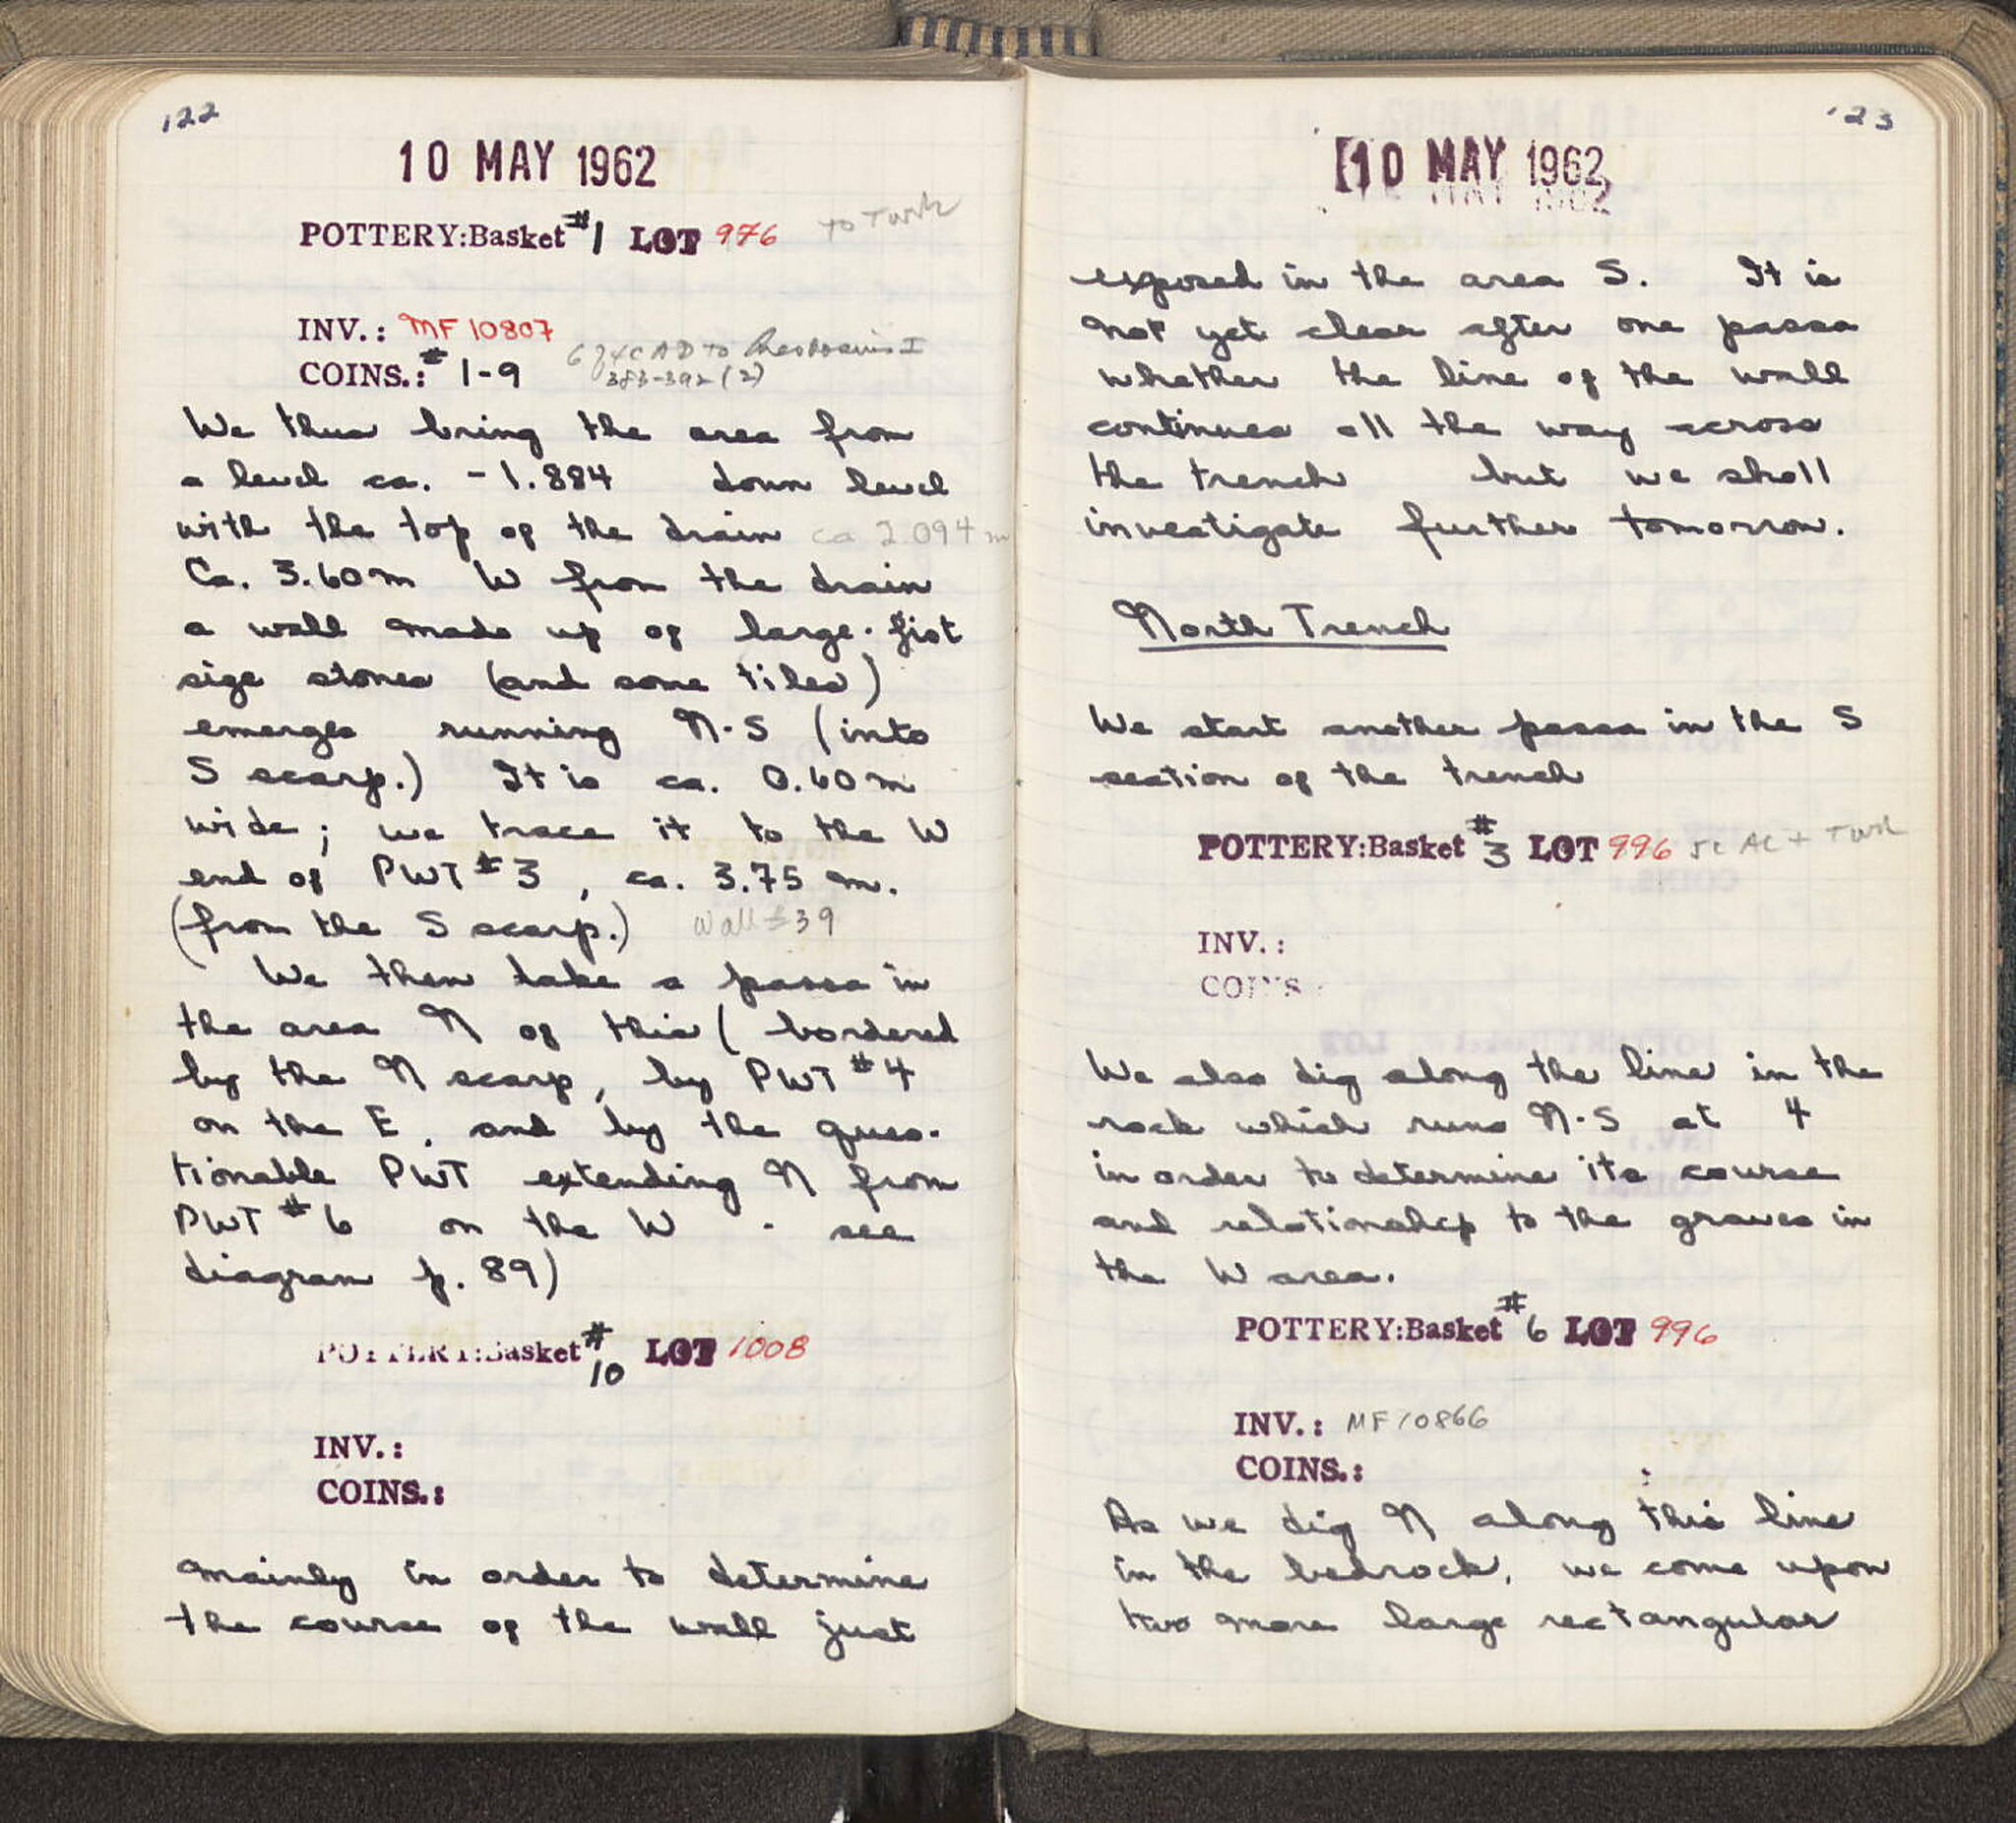 122
10 MAY 1962
POTTERY:Basket #1 LOT 976 to Turk
INV.: MF 10807
COINS.: # 1-9 6 of 4C AD to Theodosius I
383-392 (2)
We thus bring the area from
a level ca. -1.884 down level
with the top of the drain ca 2.094 m
Ca. 3.60m W from the drain
a wall made up of large-fist
size stones (and some tiles)
emerges running N-S (into
S scarp.) It is ca. 0.60m
wide; we trace it to the W
end of PWT #3, ca. 3.75 m.
(from the S scarp.) Wall #39
We then take a passa in
the area N of this (bordered
by the N scarp, by PWT #4
on the E, and by the ques-
tionable PWT extending N from
PWT #6 on the W - see
diagram p. 89)
POTTERY:Basket # 10 LOT 1008
INV.:
COINS.:
mainly in order to determine
the course of the wall just
123
10 MAY 1962
exposed in the area S. It is
not yet clear after one passa
whether the line of the wall
continues all the way across
the trench but we shall
investigate further tomorrow.
North Trench
We start another passa in the S
section of the trench
POTTERY:Basket #3 LOT 996 5c AC + Turk
INV.:
COINS
We also dig along the line in the
rock which runs N-S at 4
in order to determine its course
and relationship to the graves in
the W area.
POTTERY:Basket #6 LOT 996
INV.: MF 10866
COINS.:
As we dig N along this line
in the bedrock, we come upon
two more large rectangular